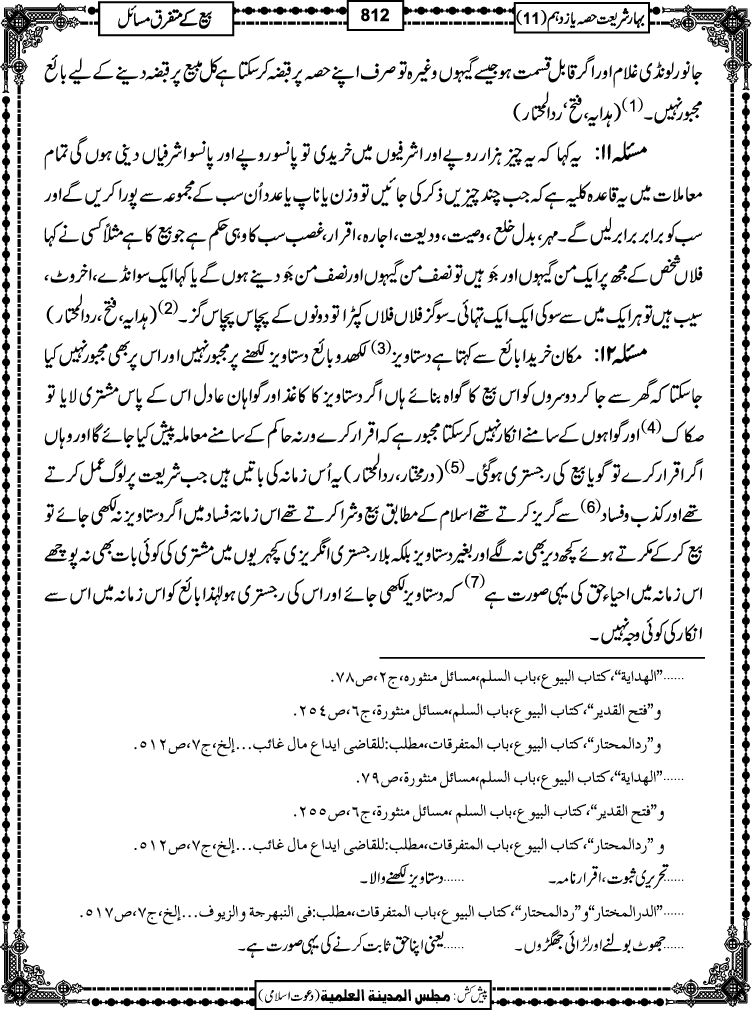 بہارشریعت حصہ یازدہم (11)
812
بیع کے متفرق مسائل
جانور لونڈی غلام اور اگر قابل قسمت ہو جیسے گیہوں وغیرہ تو صرف اپنے حصہ پر قبضہ کرسکتا ہے کل مبیع پر قبضہ دینے کے لیے بائع
مجبور نہیں۔(1) (ہدایہ، فتح، ردالمحتار)
مسئلہ ۱۱: یہ کہا کہ یہ چیز ہزار روپے اور اشرفیوں میں خریدی تو پانسو روپے اور پانسو اشرفیاں دینی ہوں گی تمام
معاملات میں یہ قاعدہ کلیہ ہے کہ جب چند چیزیں ذکر کی جائیں تو وزن یا ناپ یا عدد اُن سب کے مجموعہ سے پورا کریں گے اور
سب کو برابر برابر لیں گے۔ مہر، بدل خلع، وصیت، ودیعت، اجارہ، اقرار، غصب سب کا وہی حکم ہے جو بیع کا ہے مثلاً کسی نے کہا
فلاں شخص کے مجھ پر ایک من گیہوں اور جَو ہیں تو نصف من گیہوں اور نصف من جَو دینے ہوں گے یا کہا ایک سو انڈے، اخروٹ،
سیب ہیں تو ہر ایک میں سے سو کی ایک ایک تہائی۔ سو گز فلاں فلاں کپڑا تو دونوں کے پچاس پچاس گز۔(2) (ہدایہ، فتح، ردالمحتار)
مسئلہ ۱۲: مکان خریدا بائع سے کہتا ہے دستاویز(3) لکھدو بائع دستاویز لکھنے پر مجبور نہیں اور اس پر بھی مجبور نہیں کیا
جاسکتا کہ گھر سے جا کر دوسروں کو اس بیع کا گواہ بنائے ہاں اگر دستاویز کا کاغذ اور گواہان عادل اس کے پاس مشتری لایا تو
صکاک(4) اور گواہوں کے سامنے انکار نہیں کرسکتا مجبور ہے کہ اقرار کرے ورنہ حاکم کے سامنے معاملہ پیش کیا جائے گا اور وہاں
اگر اقرار کرے تو گویا بیع کی رجسٹری ہوگئی۔(5) (درمختار، ردالمحتار) یہ اُس زمانہ کی باتیں ہیں جب شریعت پر لوگ عمل کرتے
تھے اور کذب و فساد(6) سے گریز کرتے تھے اسلام کے مطابق بیع و شرا کرتے تھے اس زمانۂ فساد میں اگر دستاویز نہ لکھی جائے تو
بیع کرکے مکرتے ہوئے کچھ دیر بھی نہ لگے اور بغیر دستاویز بلکہ بلا رجسٹری انگریزی کچہریوں میں مشتری کی کوئی بات بھی نہ پوچھے
اس زمانہ میں احیاء حق کی یہی صورت ہے(7) کہ دستاویز لکھی جائے اور اس کی رجسٹری ہو لہٰذا بائع کو اس زمانہ میں اس سے
انکار کی کوئی وجہ نہیں۔
......”الهداية“، كتاب البيوع، باب السلم، مسائل منثوره، ج۲، ص۷۸.
و”فتح القدير“، كتاب البيوع، باب السلم، مسائل منثورة، ج٦، ص۲٥٤.
و ”ردالمحتار“، كتاب البيوع، باب المتفرقات، مطلب: للقاضى ايداع مال غائب...إلخ، ج۷، ص٥۱۲.
......”الهداية“، كتاب البيوع، باب السلم، مسائل منثورة، ص۷۹.
و”فتح القدير“، كتاب البيوع، باب السلم ، مسائل منثورة، ج٦، ص۲٥٥.
و ”ردالمحتار“، كتاب البيوع، باب المتفرقات، مطلب: للقاضى ايداع مال غائب...إلخ، ج۷، ص٥۱۲.
......تحریری ثبوت، اقرار نامہ۔ ......دستاویز لکھنے والا۔
......”الدرالمختار“و”ردالمحتار“، كتاب البيوع، باب المتفرقات، مطلب: فى النبهرجة والزيوف...إلخ، ج۷، ص٥۱۷.
......جھوٹ بولنے اور لڑائی جھگڑوں۔ ......یعنی اپنا حق ثابت کرنے کی یہی صورت ہے۔
پیش کش: مجلس المدينة العلمية (دعوت اسلامی)